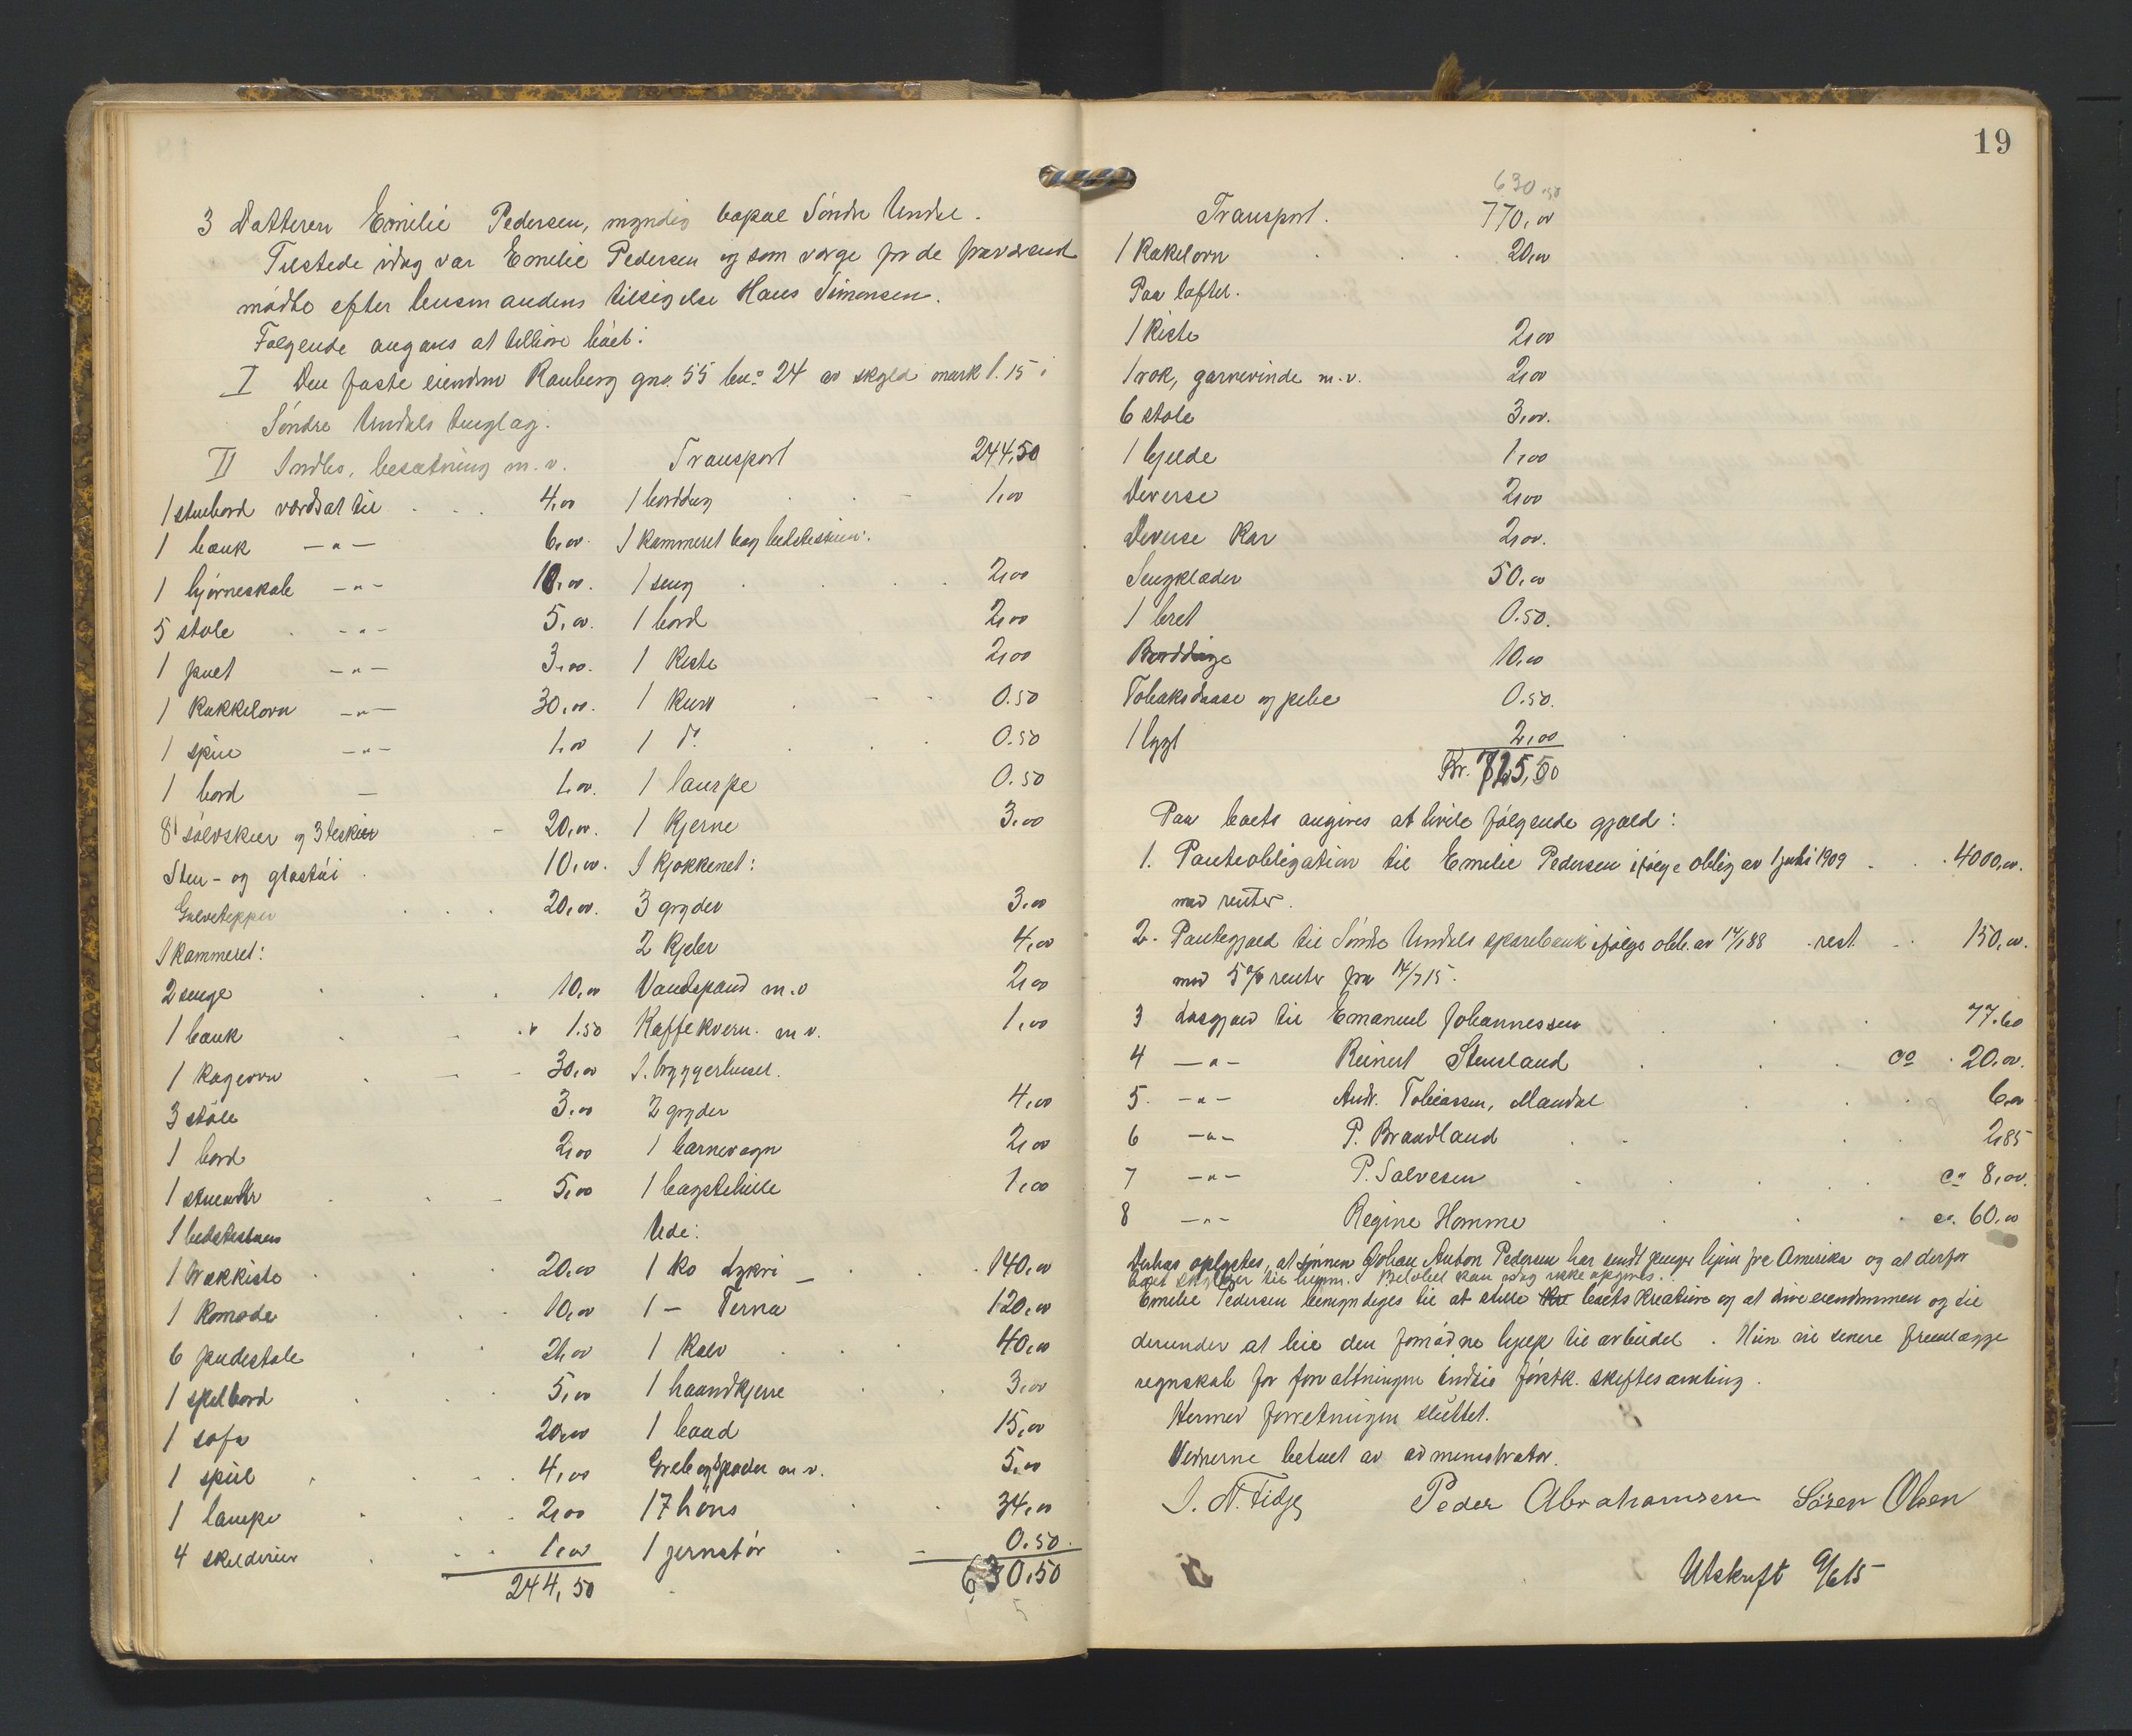 3 Datteren Emilie Pedersen, myndig bopæl Söndre Undal.
Tilstede idag var Emilie Pedersen og som værge for de fraværende
mödte efter lensmandens tilsigelse Hans Simonsen.
Følgende angaves at tilhöre böet:
I Den faste eiendom Ranberg gno. 55 bno 24 av skyld mark 1.15 i
Söndre Undals tinglag.
II Indbo, besætning m.v.
1 stuebord værdsat til 4,00
1 bænk —"— 6,00
1 hjörneskab —"— 10,00.
5 stole —"— 5,00.
1 puet —"— 3,00.
1 Kakkelovn —"— 30,00.
1 speil —"— 1,00
1 bord — 1,00.
8 sölvskeer og 3 teskeer - 20,00.
Sten- og glastöi 10,00.
Gulvtepper 20,00.
I kammeret:
2 senge 10,00
1 bænk 1.50
1 Kagovn 30,00
3 stole 3,00
1 bord 2,00
1 stueuhr 5,00
I bedstestuen
1 Trækkiste 20,00
1 Komode 10,00
6 pudestole 24,00
1 spilbord 5,00
1 sofa 20,00
1 speil 4,00
1 lampe 2,00
4 skilderier 1,00
244,50
Transport 244,50
1 borddug 1,00
I kammeret bag bedstestuen:
1 seng 2,00
1 bord 2,00
1 Kiste 2,00
1 Kurv 0.50
1 do. 0.50
1 lampe 0.50
1 Kjerne 3,00
I Kjøkkenet:
3 gryder 3,00
2 Kjeler 4,00
Vandspand m.v 2,00
Kaffekvern m.v. 1,00
I bryggerhuset.
2 gryder 4,00
1 barnevogn 2,00
1 bagstehelle 1,00
Ude:
1 Ko Lykri 140,00
1 — Terna 120,00
1 Kalv 40,00
1 haandkjerre 3,00
1 baad 15,00
Greb og Spader m.v. 5,00
17 höns 34,00
1 jernstör 0.50.
630,50
19
630,50
Transport. 770,00
1 Kakelovn 20,00
Paa loftet.
1 Kiste 2,00
1 rok, garnvinde m.v. 2,00
6 stole 3,00.
1 bjelde 1,00
Diverse 2,00
Diverse Kar 2,00.
Sengklæder 50,00
1 bret 0.50.
Borddug 10,00
Tobaksdaase og pibe 0.50.
1 lygt 2,00
Kr. 725,50
Paa boets angives at hvile følgende gjæld:
1. Panteobligation til Emilie Pedersen ifølge oblig av 1 juli 1909 4000,00.
med renter.
2. Pantegjæld til Söndre Undals sparebank ifølge obl. av 14/1 88 rest 150,00.
med 5% renter fra 14/7 15.
3 Løsgjæld til Emanuel Johannessen 77.60
4 —"— Reinert Stensland ca 20,00.
5. —"— Andr. Tobiassen, Mandal 6,00
6 —"— P. Brandland 2,85
7 —"— P. Salvesen ca 8,00.
8 —"— Regine Homme ca. 60,00
Derhos oplystes, at sönnen Johan Anton Pedersen har sendt penger hjem fra Amerika og at derfor
boet skylder til ham. Beløbet kan idag ikke opgives.
Emilie Pedersen bemyndiges til at stelle boets Kreaturer og at drive eiendommen og til
derunder at leie den fornödne hjælp til arbeidet. Hun vil senere fremlægge
regnskab for forvaltningen indtil förstk. skiftesamling.
Hermed forretningen sluttet.
Vidnerne betalt av administrator.
S. N. Fidje Peder Abrahamsen Sören Olsen
Utskrift 9/6 15